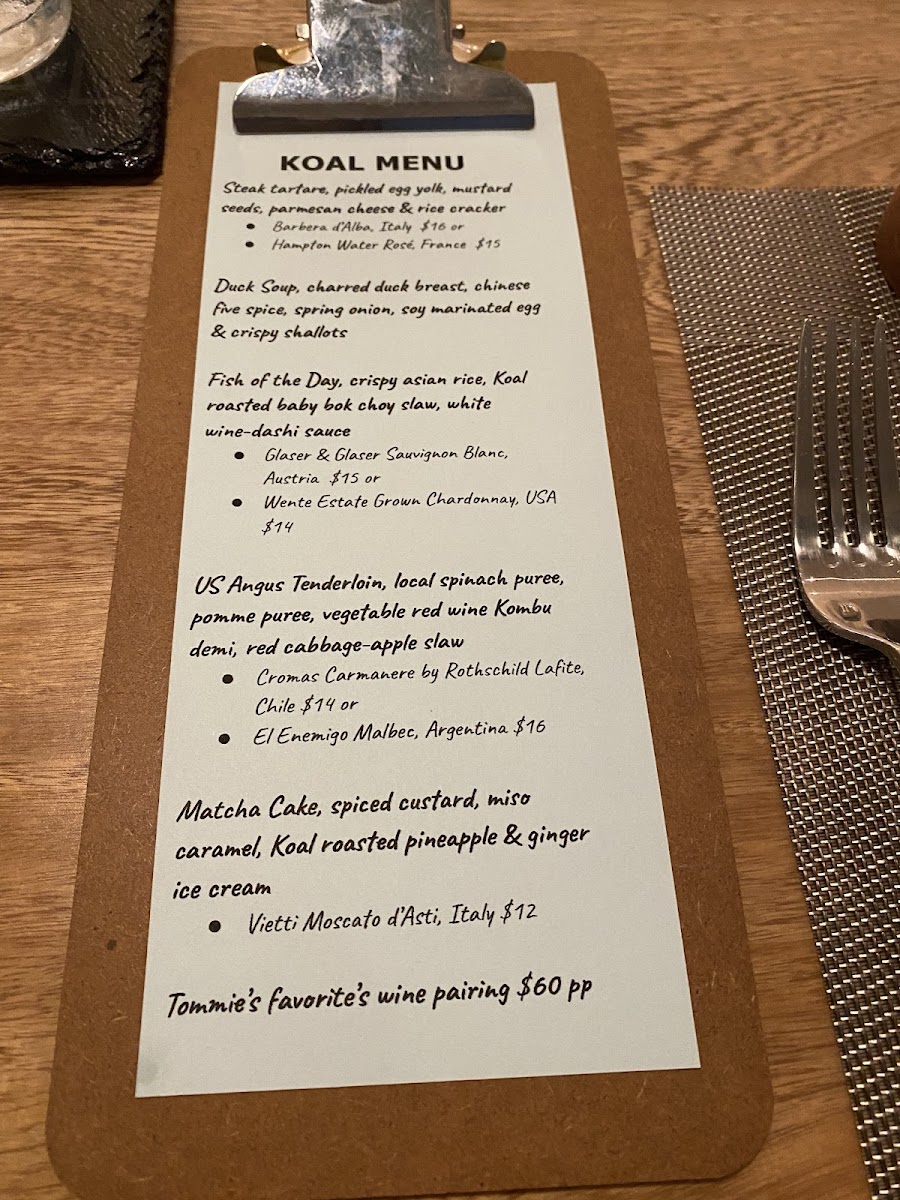 KOAL MENU
Steak tartare, pickled egg yolk, mustard
seeds, parmesan cheese & rice cracker
• Barbera d'Alba, Italy $16 or
• Hampton Water Rosé, France $15
Duck Soup, charred duck breast, chinese
five spice, spring onion, soy marinated egg
& crispy shallots
Fish of the Day, crispy asian rice, Koal
roasted baby bok choy slaw, white
wine-dashi sauce
• Glaser & Glaser Sauvignon Blanc,
Austria $15 or
• Wente Estate Grown Chardonnay, USA
$14
US Angus Tenderloin, local spinach puree,
pomme puree, vegetable red wine Kombu
demi, red cabbage-apple slaw
• Cromas Carmanere by Rothschild Lafite,
Chile $14 or
• El Enemigo Malbec, Argentina $16
Matcha Cake, spiced custard, miso
caramel, Koal roasted pineapple & ginger
ice cream
• Vietti Moscato d'Asti, Italy $12
Tommie's favorite's wine pairing $60 pp